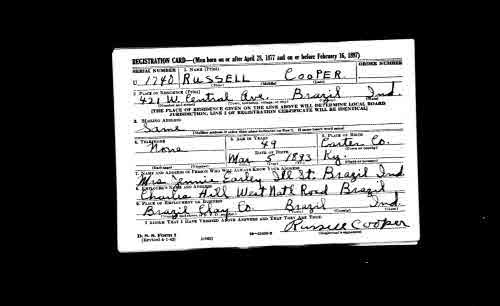 REGISTRATION CARD—(Men born on or after April 28, 1877 and on or before February 16, 1897)
SERIAL NUMBER 1. NAME (Print) ORDER NUMBER
U 1740 RUSSELL COOPER
(First) (Middle) (Last)
2. PLACE OF RESIDENCE (Print)
421 W. Central Ave. Brazil Ind.
(THE PLACE OF RESIDENCE GIVEN ON THE LINE ABOVE WILL DETERMINE LOCAL BOARD
JURISDICTION; LINE 2 OF REGISTRATION CERTIFICATE WILL BE IDENTICAL)
3. MAILING ADDRESS
Same
4. TELEPHONE 5. AGE IN YEARS 6. PLACE OF BIRTH
None 49 Carter Co.
DATE OF BIRTH
Mar 5 1893 Ky.
7. NAME AND ADDRESS OF PERSON WHO WILL ALWAYS KNOW YOUR ADDRESS
Mrs Jennie Ill St. Brazil Ind
8. EMPLOYER'S NAME AND ADDRESS
Charles Hill West Natl Road Brazil
9. PLACE OF EMPLOYMENT OR BUSINESS
Brazil Clay Co. Brazil Ind.
I AFFIRM THAT I HAVE VERIFIED ABOVE ANSWERS AND THAT THEY ARE TRUE.
Russell Cooper
D. S. S. Form 1
(Revised 4-1-42)